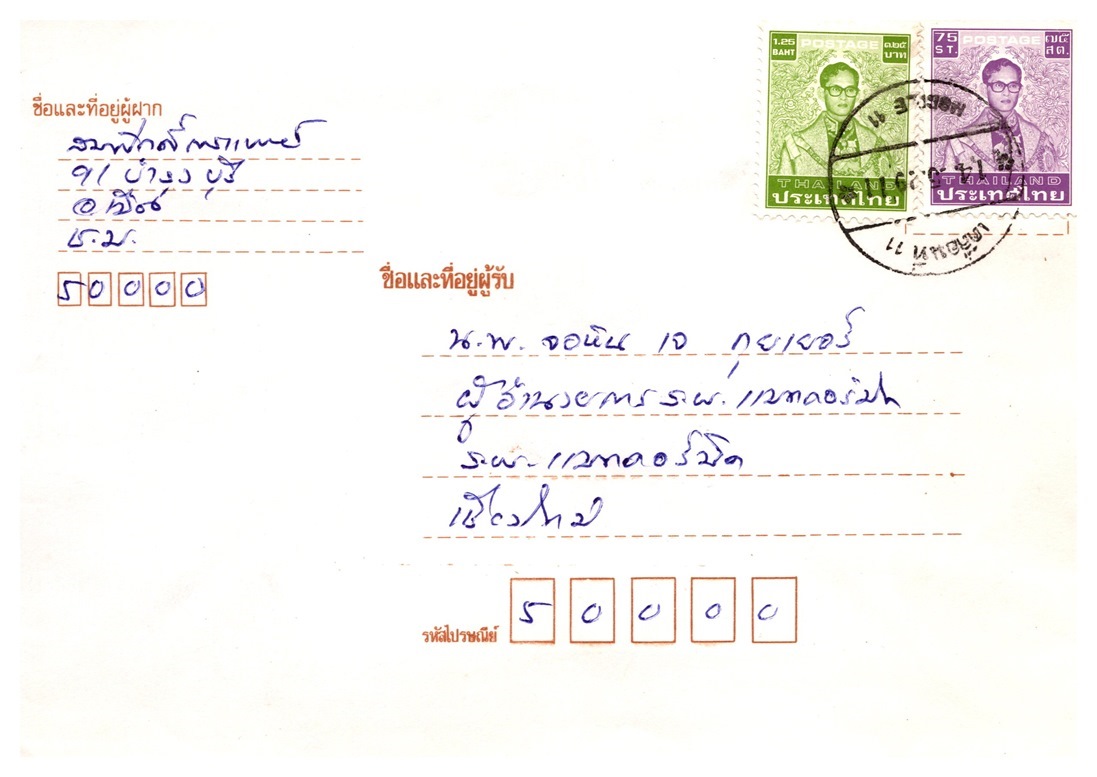 1.25 BAHT POSTAGE ๑.๒๕ บาท
THAILAND
ประเทศไทย
75 ST. POSTAGE ๗๕ สต.
THAILAND
ประเทศไทย
MOBILE 11
เคลื่อนที่ 11
ชื่อและที่อยู่ผู้ฝาก
91 บำรุงบุรี
อ.เมือง
ช.ม.
50000
ชื่อและที่อยู่ผู้รับ
น.พ. จอห์น เจ กุยเยอร์
ผู้อำนวยการ ร.พ. แมคคอร์มิค
ร.พ. แมคคอร์มิค
เชียงใหม่
รหัสไปรษณีย์ 50000